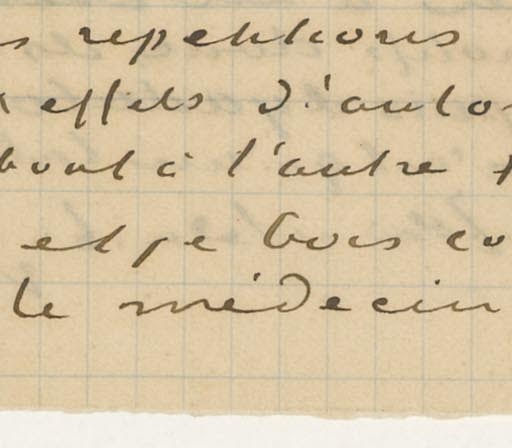 s repetitions
effets d'auto
bout à l'autre
et je bois co
le médecin